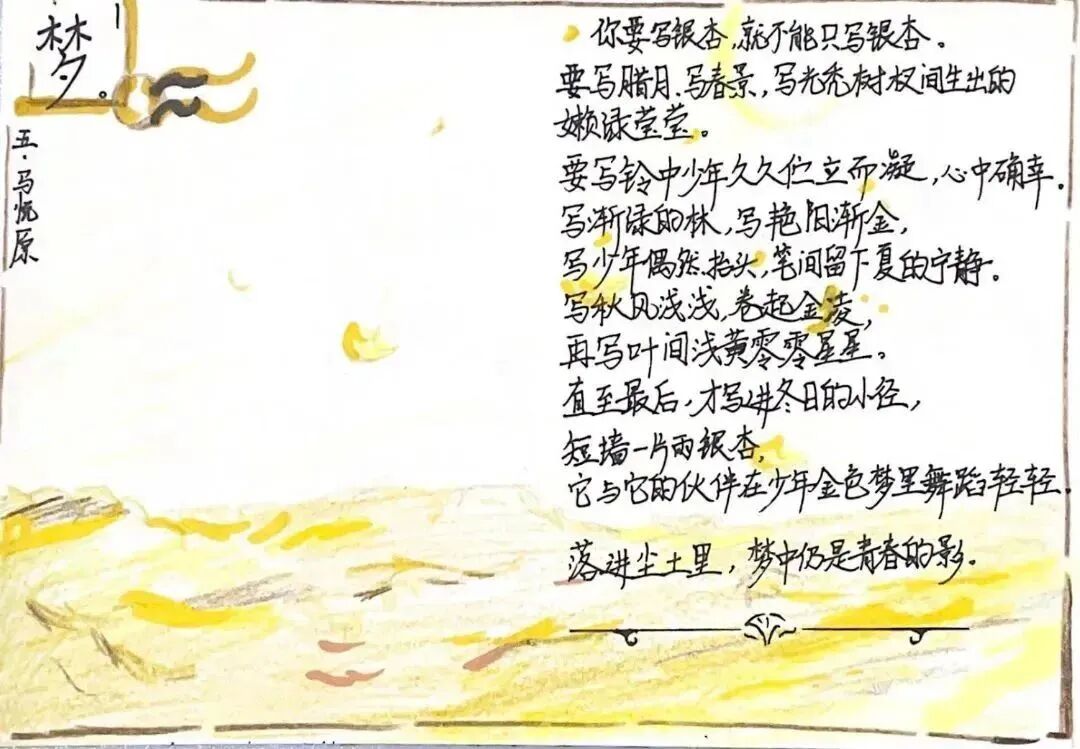 梦。
五·马悦原
你要写银杏,就不能只写银杏。
要写腊月,写春景,写光秃树杈间生出的
嫩绿莹莹。
要写铃中少年久久伫立而凝,心中确幸.
写渐绿的林,写艳阳渐金,
写少年偶然抬头,笔间留下夏的宁静。
写秋风浅浅,卷起金凌,
再写叶间浅黄零零星星。
直至最后,才写进冬日的小径,
短墙一片雨银杏,
它与它的伙伴在少年金色梦里舞蹈轻轻.
落进尘土里,梦中仍是青春的影.